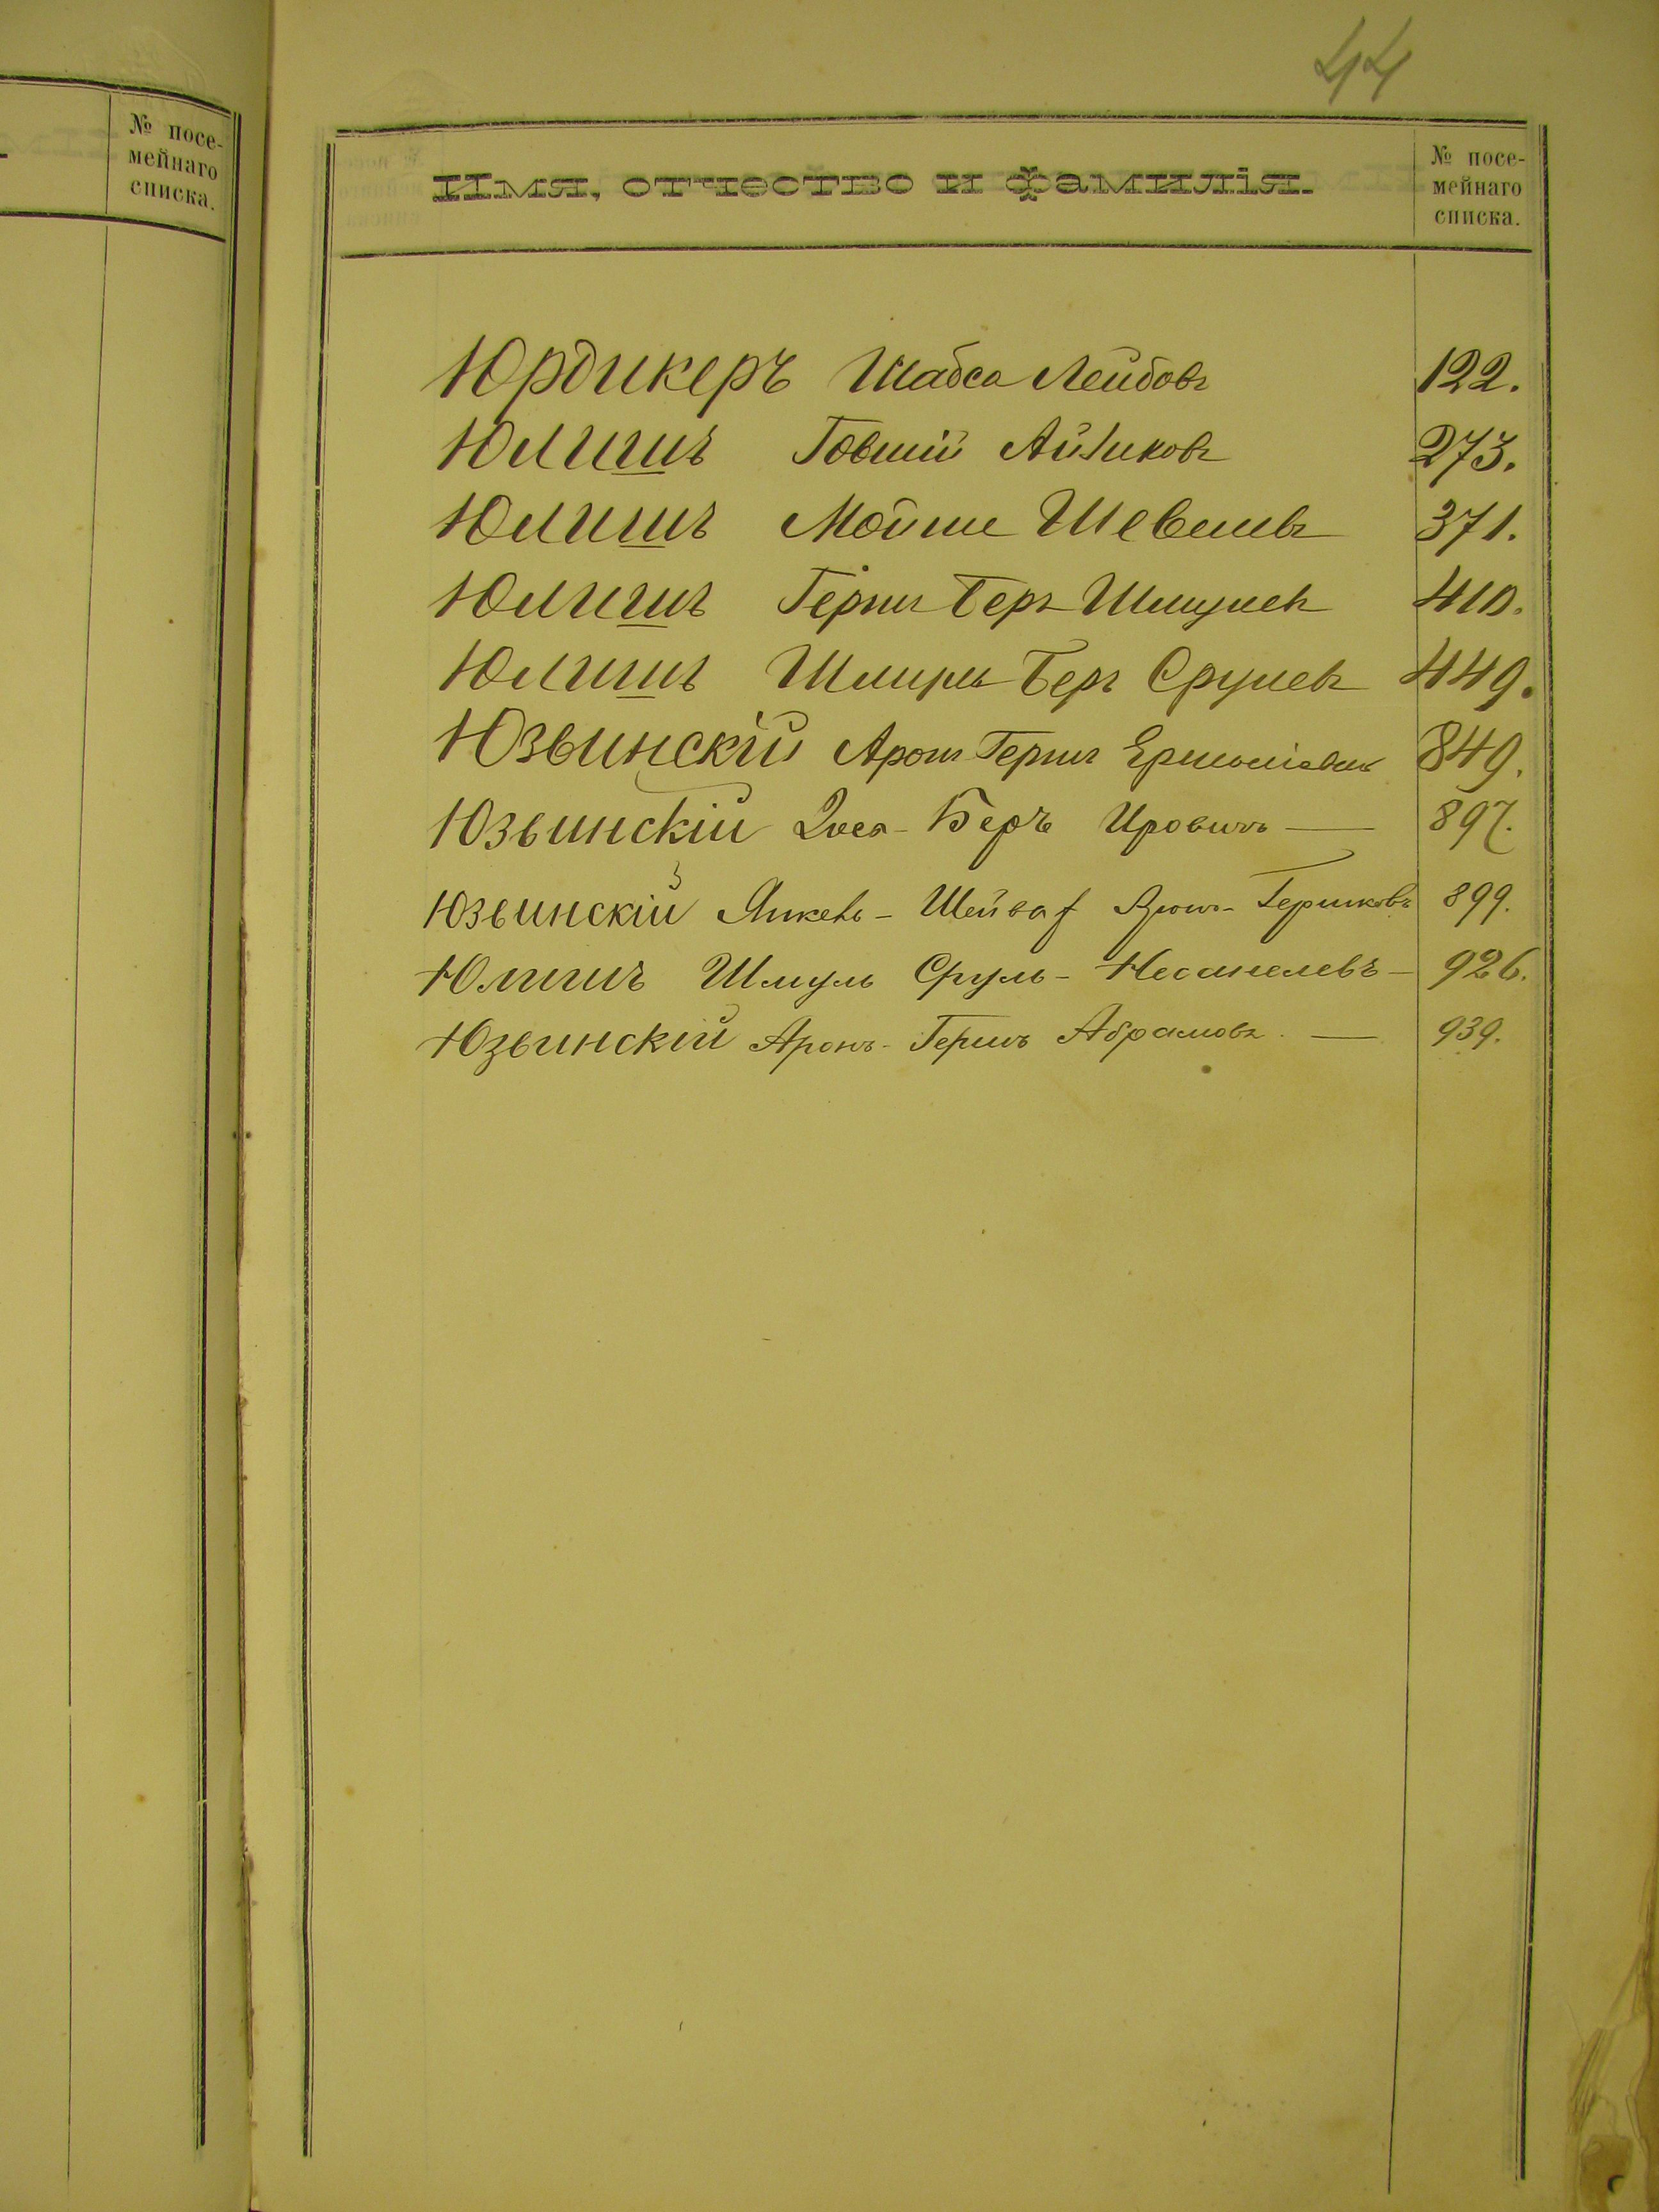 № посе-
мейнаго
списка.
44
Имя, отчество и фамилія.
№ посе-
мейнаго
списка.
Юрдикеръ Шабса Лейбовъ 122.
Юлишъ Говшій Айзиковъ 273.
Юлишъ Мойше Шевелевъ 371.
Юлишъ Гершъ Беръ Шмулевъ 410.
Юлишъ Шмуль Беръ Срулевъ 449.
Юзвинскій Аронъ Гершъ 849.
Юзвинскій Беръ Ировичъ 897.
Юзвинскій Янкель - Аронъ - Гершковъ 899.
Юлишъ Шмуль Сруль - Несанелевъ - 926.
Юзвинскій Аронъ - Гершъ Абрамовъ. — 939.